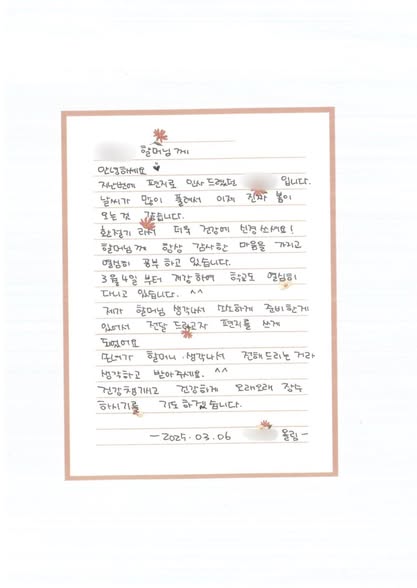 할머님께
안녕하세요
지난번에 편지로 인사드렸던 입니다.
날씨가 많이 풀려서 이제 진짜 봄이
오는 것 같습니다.
환절기 라서 더욱 건강에 신경 쓰세요!
할머님께 항상 감사한 마음을 가지고
열심히 공부 하고 있습니다.
3월 4일 부터 개강하여 학교도 열심히
다니고 있습니다. ^^
제가 할머님 생각나서 따로하게 준비한게
있어서 전달 드리고자 편지를 쓰게
되었어요
할머니 생각나서 전해드리는 거라
생각하고 받아주세요. ^^
건강챙기시고 건강하게 오래오래 장수
하시기를 기도 하겠습니다.
- 2025. 03. 06 올림 -